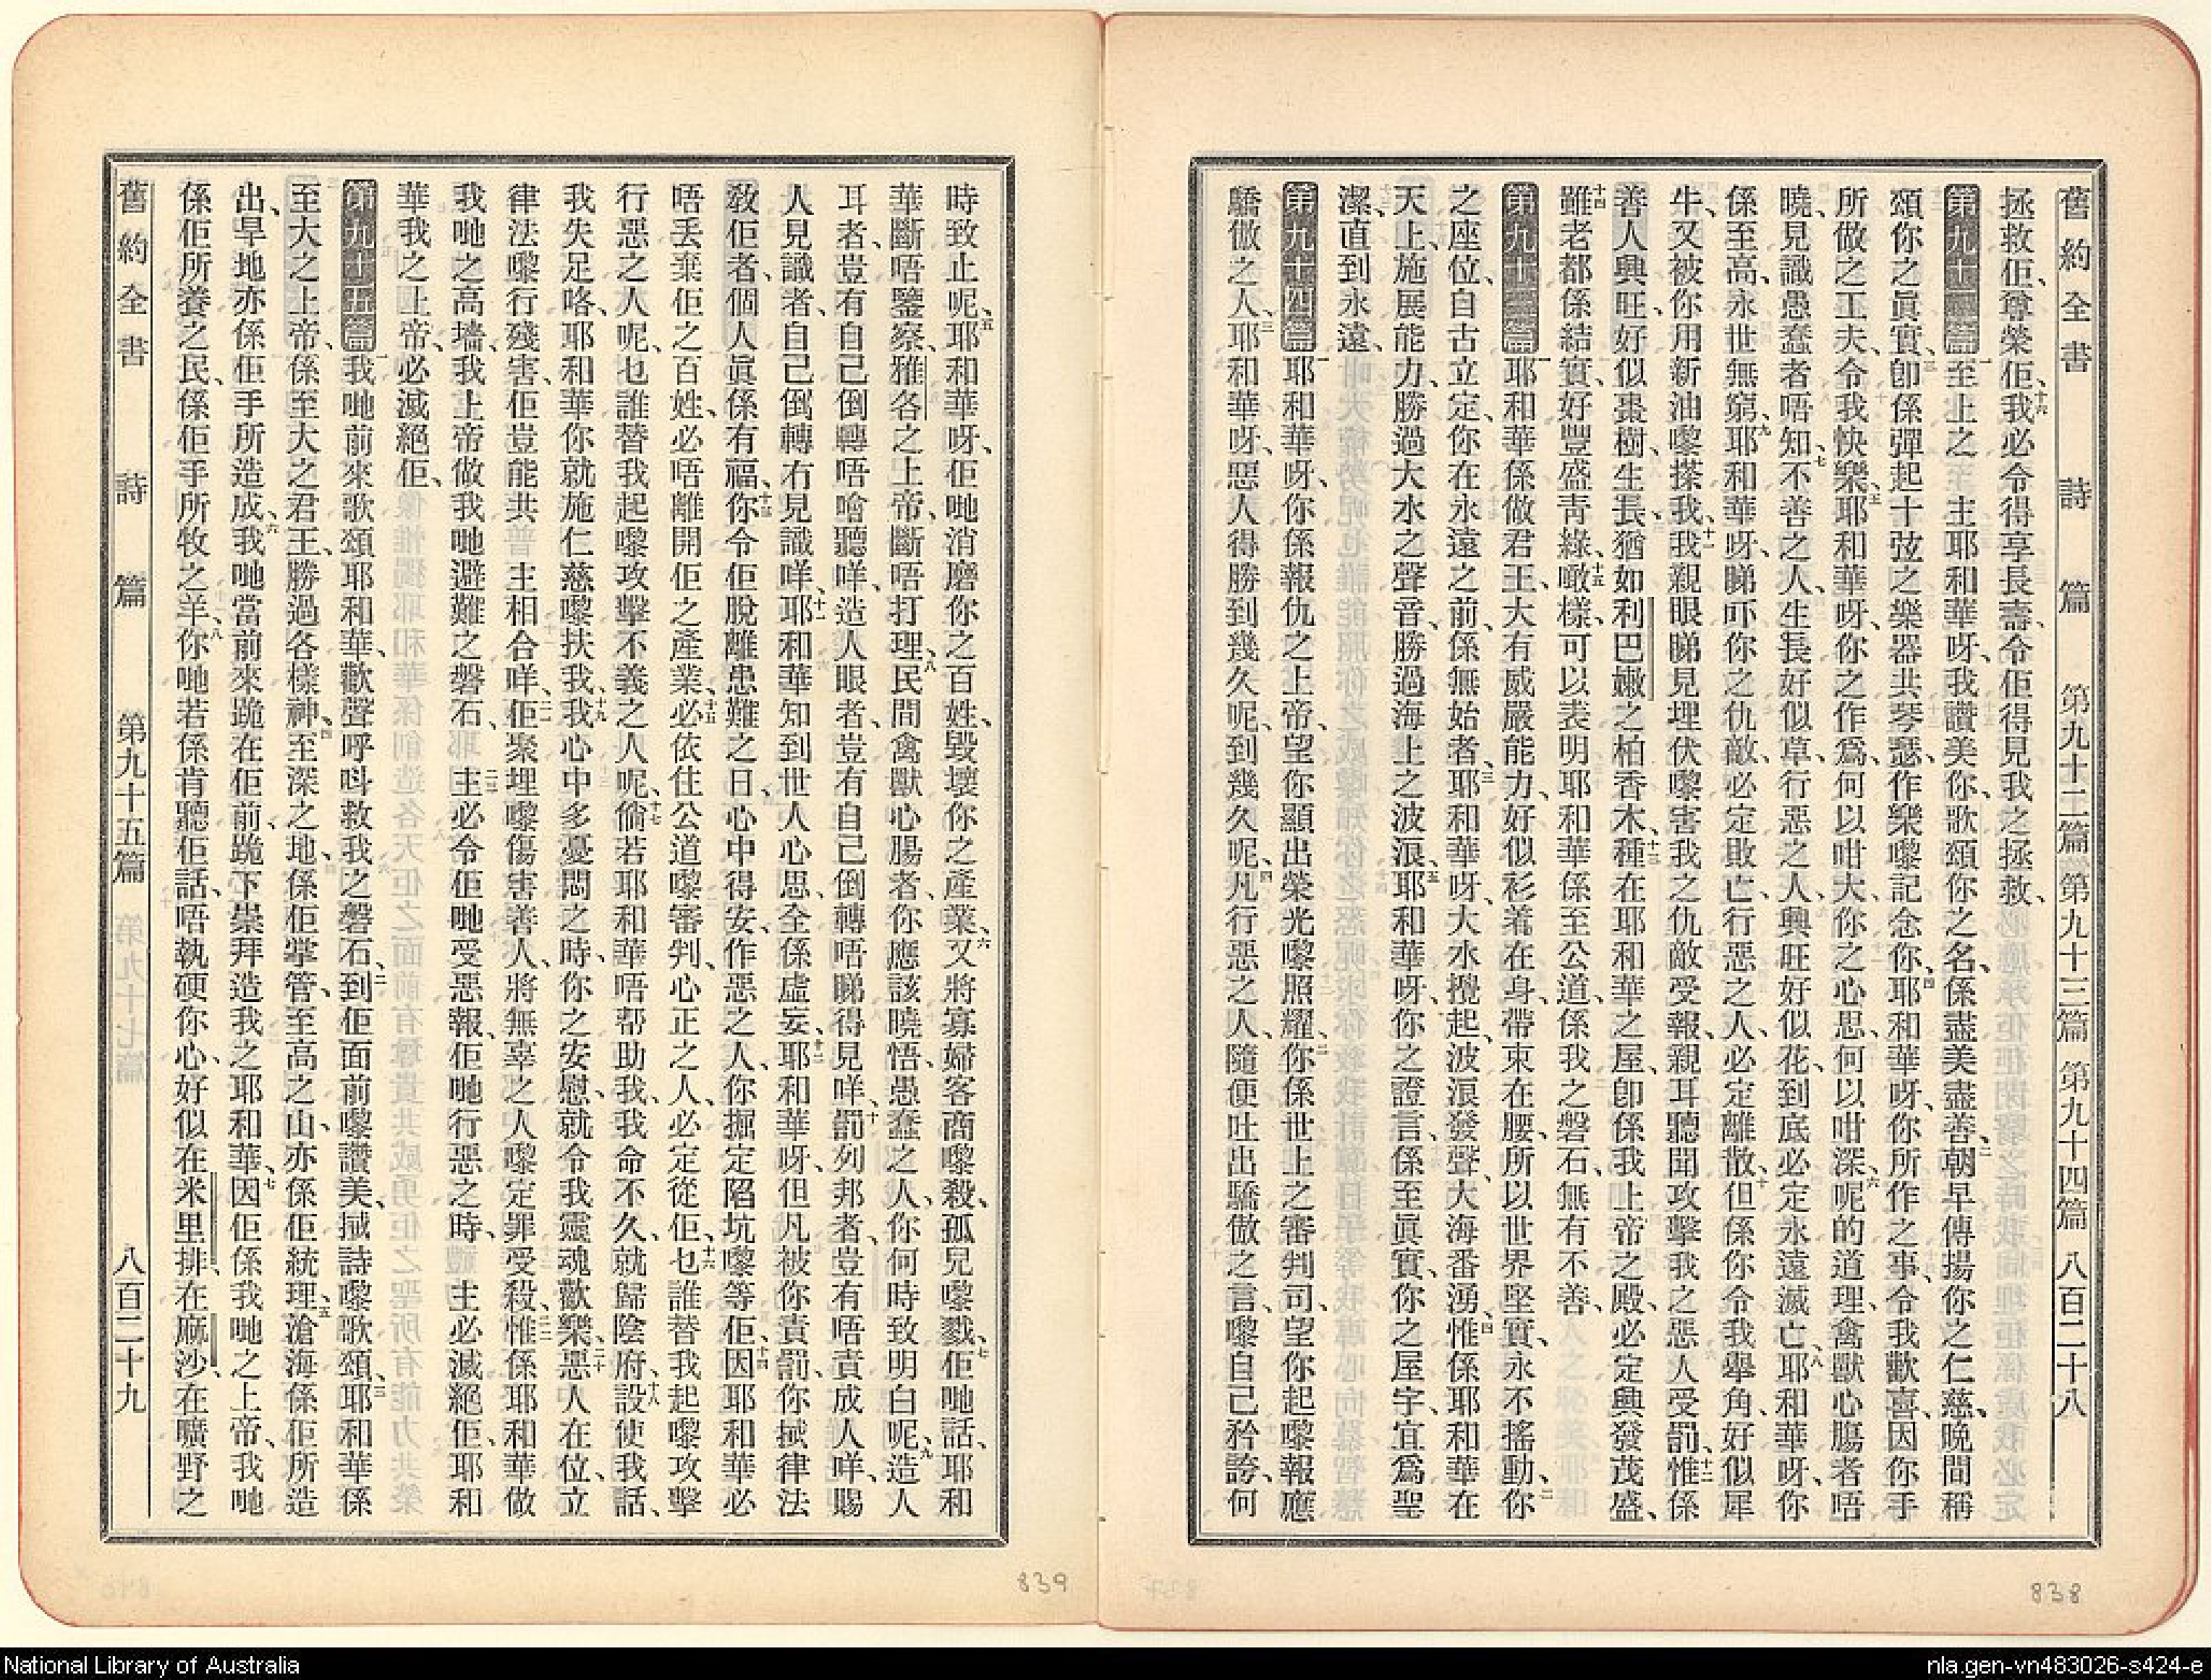 舊約全書 詩篇 第九十二篇 第九十三篇 第九十四篇 八百二十八
拯救佢、尊榮佢、十六我必令得享長壽、令佢得見我之拯救、
第九十二篇 一至上之 主耶和華呀、我讚美你、歌頌你之名、係盡美盡善、二朝早傳揚你之仁慈、晚間稱
頌你之眞實、三卽係彈起十弦之樂器共琴瑟、作樂嚟記念你、四耶和華呀、你所作之事、令我歡喜、因你手
所做之工夫、令我快樂、五耶和華呀、你之作爲、何以咁大、你之心思、何以咁深、六呢的道理、禽獸心腸者唔
曉、見識愚蠢者唔知、七不善之人、生長好似草、行惡之人、興旺好似花、到底必定永遠滅亡、八耶和華呀、你
係至高、永世無窮、九耶和華呀、睇吓你之仇敵、必定敗亡、行惡之人、必定離散、十但係你令我舉角、好似犀
牛、又被你用新油嚟搽我、十一我親眼睇見埋伏嚟害我之仇敵受報、親耳聽聞攻擊我之惡人受罰、十二惟係
善人興旺、好似棗樹、生長猶如利巴嫩之柏香木、十三種在耶和華之屋、卽係我上帝之殿、必定興發茂盛、
十四雖老都係結實、好豐盛靑綠、十五噉樣、可以表明耶和華係至公道、係我之磐石、無有不善、
第九十三篇 一耶和華係做君王、大有威嚴能力、好似衫着在身、帶束在腰、所以世界堅實、永不搖動、二你
之座位、自古立定、你在永遠之前、係無始者、三耶和華呀、大水攪起、波浪發聲、大海番湧、四惟係耶和華在
天上、施展能力、勝過大水之聲音、勝過海上之波浪、五耶和華呀、你之證言、係至眞實、你之屋宇、宜爲聖
潔、直到永遠、
第九十四篇 一耶和華呀、你係報仇之上帝、望你顯出榮光嚟照耀、二你係世上之審判司、望你起嚟報應
驕傲之人、三耶和華呀、惡人得勝到幾久呢、到幾久呢、四凡行惡之人、隨便吐出驕傲之言、嚟自己矜誇、何
時致止呢、五耶和華呀、佢哋消磨你之百姓、毀壞你之產業、六又將寡婦客商嚟殺、孤兒嚟戮、七佢哋話、耶和
華斷唔鑒察、雅各之上帝、斷唔打理、八民間禽獸心腸者、你應該曉悟、愚蠢之人、你何時致明白呢、九造人
耳者、豈有自己倒轉唔噲聽咩、造人眼者、豈有自己倒轉唔睇得見咩、十罰列邦者、豈有唔責成人咩、賜
人見識者、自己倒轉冇見識咩、十一耶和華知到世人心思、全係虛妄、十二耶和華呀、但凡被你責罰、你𢬿律法
敎佢者、個人眞係有福、十三你令佢脫離患難之日、心中得安、作惡之人、你掘定陷坑嚟等佢、十四因耶和華必
唔丟棄佢之百姓、必唔離開佢之產業、十五必依住公道嚟審判、心正之人、必定從佢、十六乜誰替我起嚟攻擊
行惡之人呢、乜誰替我起嚟攻擊不義之人呢、十七倘若耶和華唔帮助我、我命不久就歸陰府、十八設使我話、
我失足咯、耶和華你就施仁慈嚟扶我、十九我心中多憂悶之時、你之安慰、就令我靈魂歡樂、二十惡人在位、立
律法嚟行殘害、佢豈能共 主相合咩、二一佢聚埋嚟傷害善人、將無辜之人嚟定罪受殺、二二惟係耶和華做
我哋之高墻、我上帝做我哋避難之磐石、二三主必令佢哋受惡報、佢哋行惡之時、 主必滅絕佢、耶和
華我之上帝、必滅絕佢、
第九十五篇 一我哋前來歌頌耶和華、歡聲呼呌救我之磐石、二到佢面前嚟讚美、𢬿詩嚟歌頌、三耶和華係
至大之上帝、係至大之君王、勝過各樣神、四至深之地、係佢掌管、至高之山、亦係佢統理、五滄海係佢所造
出、旱地亦係佢手所造成、六我哋當前來跪在佢前、跪下崇拜造我之耶和華、七因佢係我哋之上帝、我哋
係佢所養之民、係佢手所牧之羊、八你哋若係肯聽佢話、唔執硬你心、好似在米里排、在麻沙、在曠野之
舊約全書 詩篇 第九十五篇 八百二十九
839
838
National Library of Australia
nla.gen-vn483026-s424-e